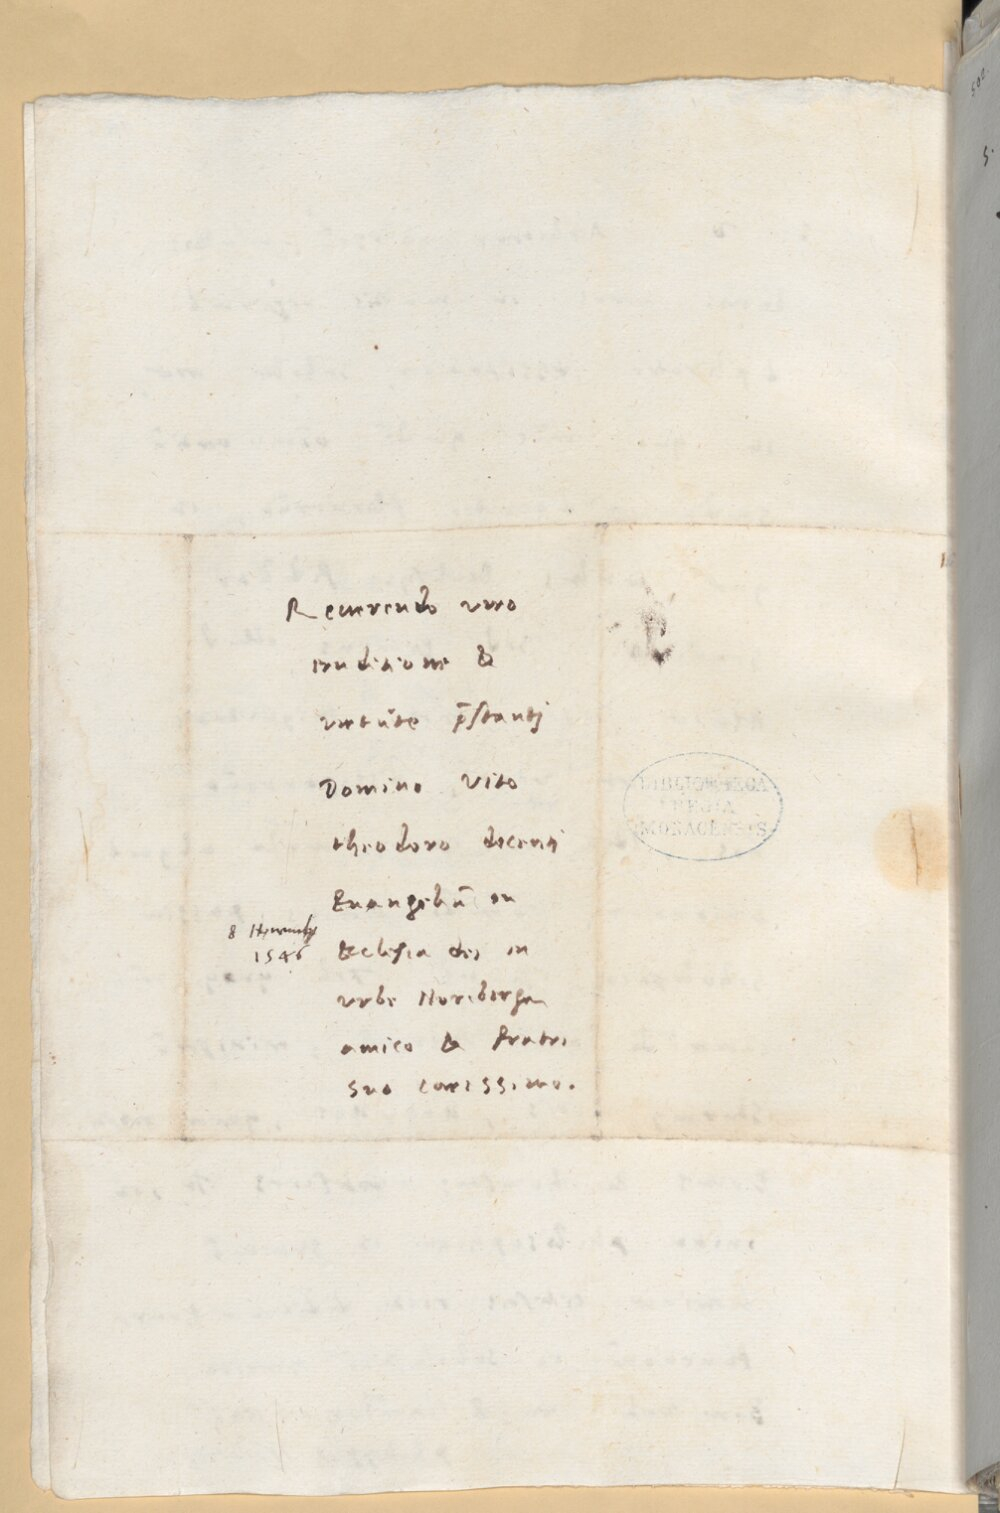 Reuerendo viro
eruditione &
virtute p̄stantj
Domino Vito
theodoro docentj
Euangeliū in
Ecclesia dei in
vrbe Noriberga
amico & fratri
suo carissimo.
8 Novemb
1546
BIBLIOTHECA
REGIA
MONACENSIS